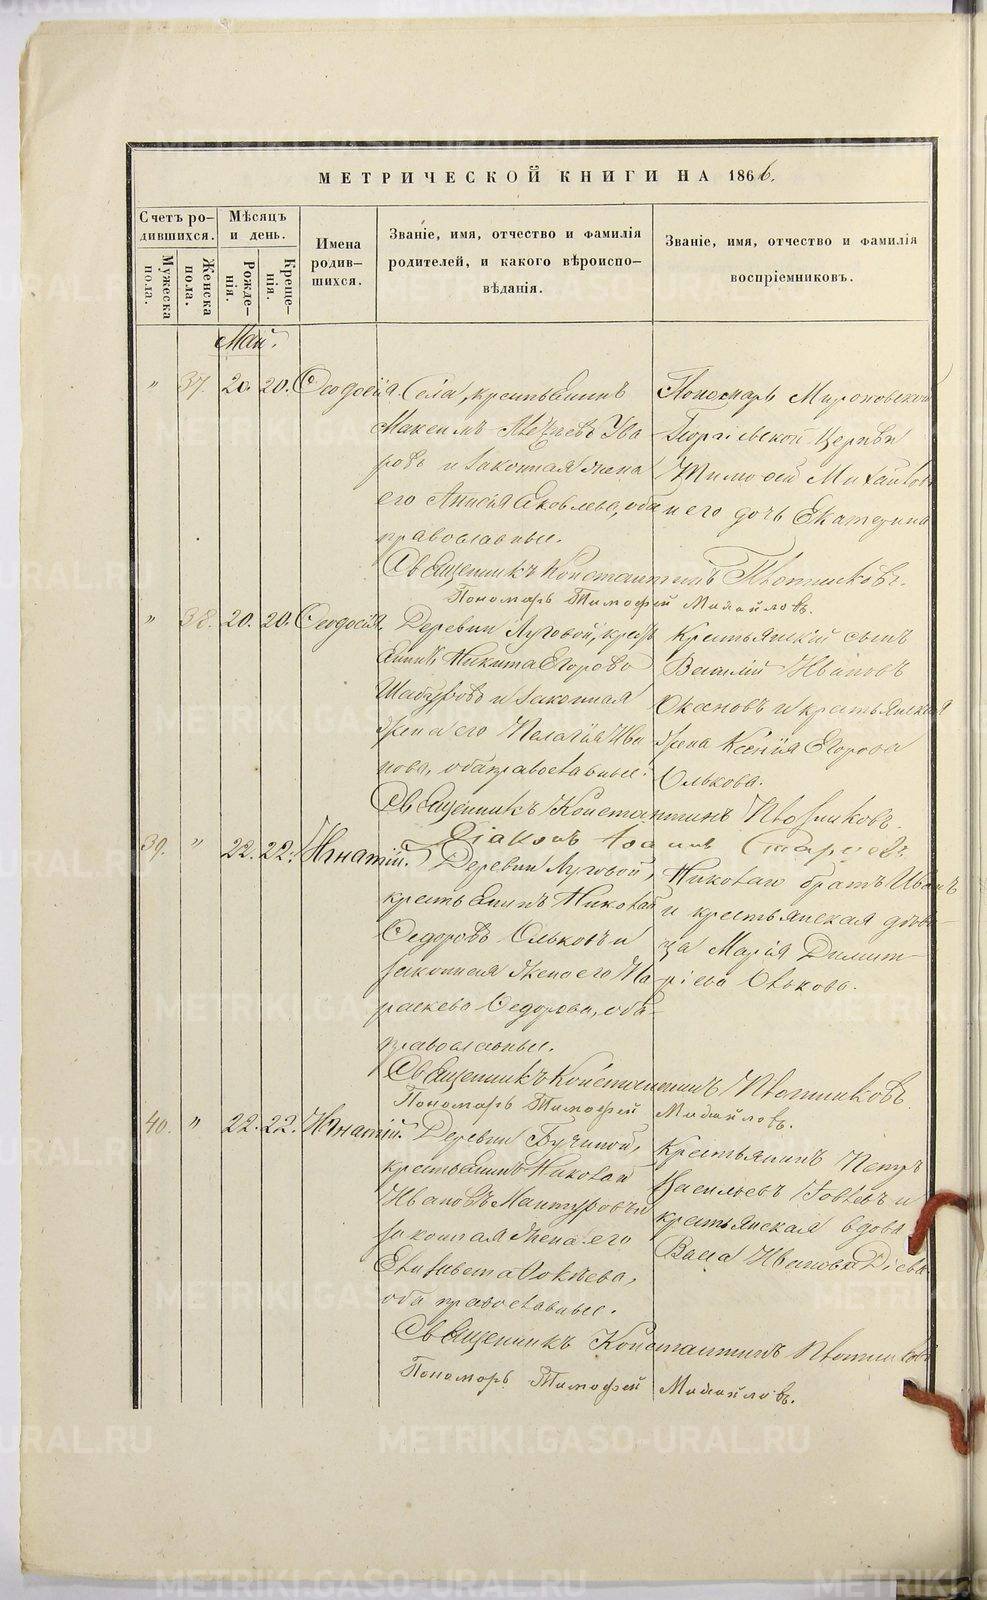 МЕТРИЧЕСКОЙ КНИГИ НА 1866.
Счетъ родившихся.
Мѣсяцъ и день.
Имена родившихся.
Званіе, имя, отчество и фамилія родителей, и какого вѣроисповѣданія.
Званіе, имя, отчество и фамилія воспріемниковъ.
Мужеска пола.
Женска пола.
Рожденія.
Крещенія.
Май.
" 37. 20. 20. Ѳеодосія
Села, крестьянинъ
Максимъ Ува
ровъ и законная жена
его Анисія Яковлева, оба
православные.
Пономарь Мироновской
Георгіевской Церкви
Тимофей Михайловъ
и его дочь Екатерина
Священникъ Константинъ Плотниковъ.
Пономарь Тимофей Михайловъ.
" 38. 20. 20. Ѳеодосія,
Деревни Луговой, крест
янинъ Никита Егоровъ
Шабуровъ и законная
жена его Пелагія Ива
нова, оба православные.
Крестьянскій сынъ
Василій Ивановъ
и крестьянская
жена Ксенія Егорова
Олькова.
Священникъ Константинъ Плотниковъ.
Діаконъ Іоаннъ
39. " 22. 22. Игнатій.
Деревни Луговой,
крестьянинъ Николай
Ѳедоровъ Ольковъ и
законная жена его Па
раскева Ѳедорова, оба
православные.
Николаю братъ Иванъ
и крестьянская дѣви-
ца Марія Димит-
ріева Олькова.
Священникъ Константинъ Плотниковъ
Пономарь Тимофей Михайловъ.
40. " 22. 22. Игнатій.
Деревни Бучиной,
крестьянинъ Николай
Ивановъ Мантуровъ и
законная жена его
Елисавета
оба православные.
Крестьянинъ Петръ
Васильевъ и
крестьянская вдова
Васса Иванова
Священникъ Константинъ Плотниковъ
Пономарь Тимофей Михайловъ.
METRIKI.GASO-URAL.RU